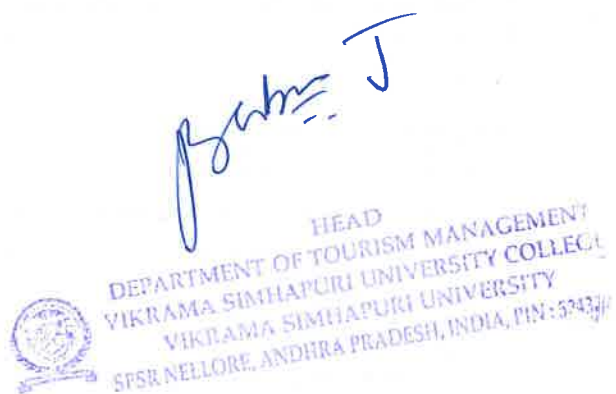 J
HEAD
DEPARTMENT OF TOURISM MANAGEMENT
VIKRAMA SIMHAPURI UNIVERSITY COLLEGE
VIKRAMA SIMHAPURI UNIVERSITY
SPSR NELLORE, ANDHRA PRADESH, INDIA, PIN :